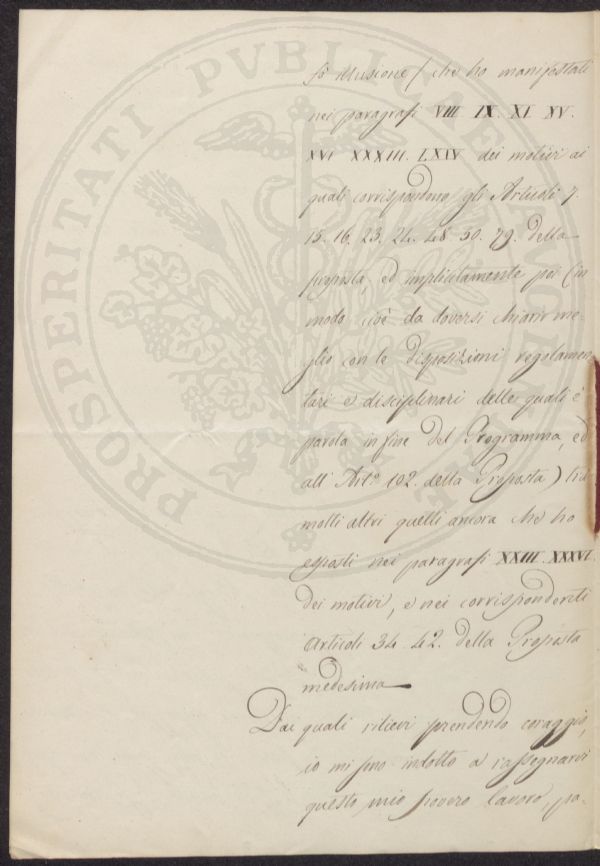 missione / che ho manifestati
nei paragrafi VIII. IX. XI. XV.
XVI. XXXIII. LXIV. dei motivi ai
quali corrispondono gli Articoli 7.
15. 16. 23. 24. 48. 50. 79. della
proposta ed implicitamente poi (in
modo cioè da doversi chiarir me-
glio con le disposizioni regolamen
tari e disciplinari delle quali è
parola in fine del Programma, ed
all' Art.o 102. della Proposta) tra
molti altri quelli ancora che ho
esposti nei paragrafi XXIII. XXXVI.
dei motivi, e nei corrispondenti
Articoli 34. 42. della Proposta
medesima
Dai quali rilievi prendendo coraggio,
io mi sono indotto a rassegnarvi
questo mio povero lavoro, po-
PROSPERITATI PVBLICAE AVGENDAE